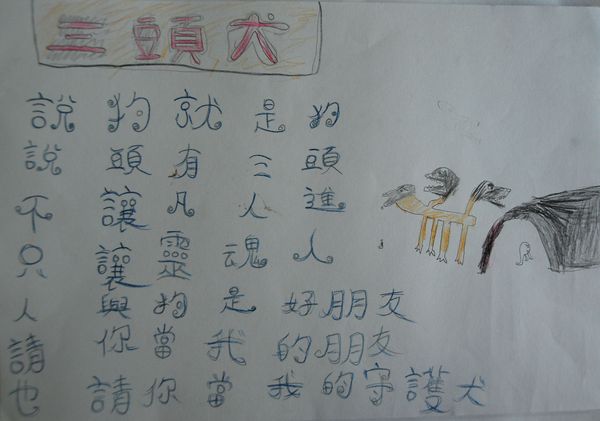 三頭犬
說狗就是狗
說頭有三頭
不讓凡人進
只讓靈魂人
人與狗是好朋友
請你當我的朋友
也請你當我的守護犬